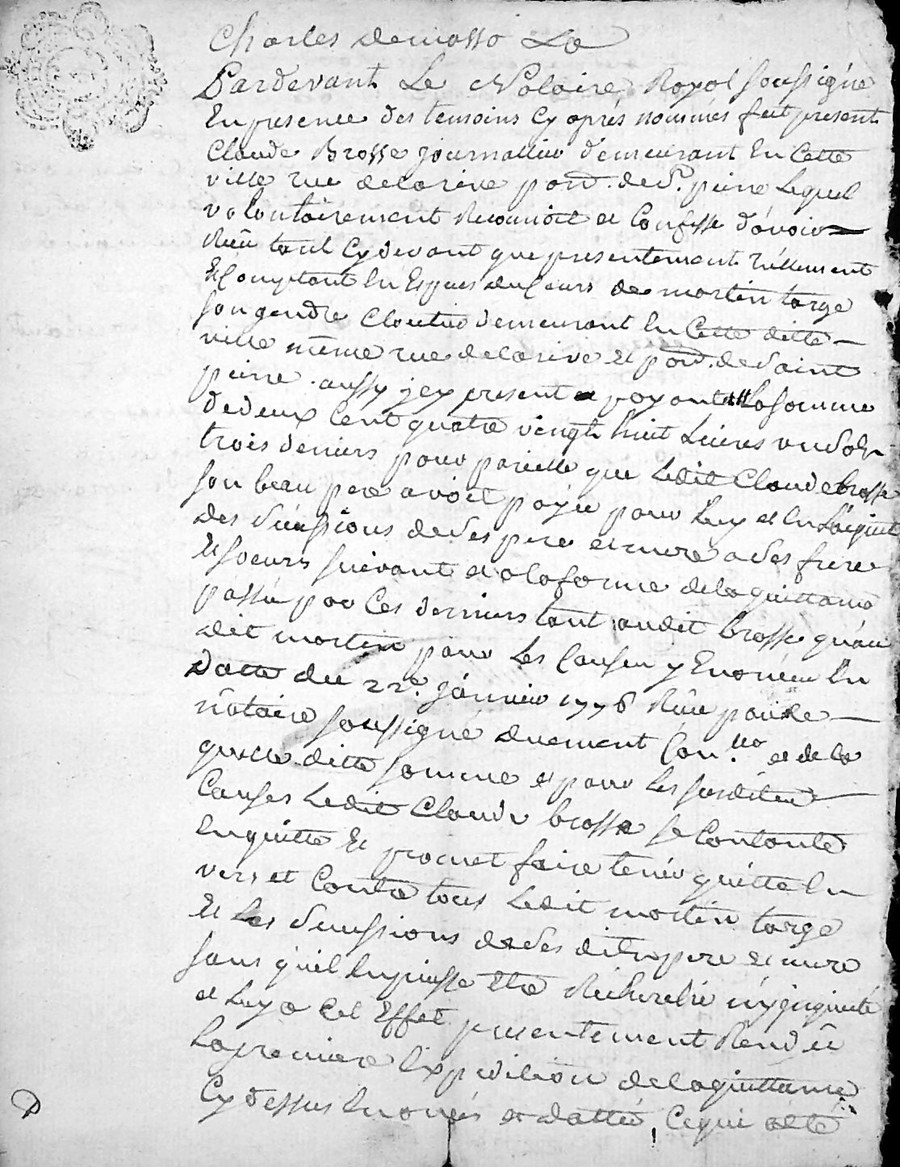 Charles
Pardevant Le Notaire Royal soussigné
En presence des temoins Cy après nommés fut present
Claude Brosse journallier demeurant En Cette
ville rue delarive paro.^e de S.^t pierre Lequel
volontairement Reconnoit et Confesse d'avoir
Rêcu tant Cydevant que presentement réellement
Et Comptant En Especes du Cours de martin targe
son gendre Cloutier demeurant En Cette ditte
ville même rue delarive Et paro.^e de Saint
pierre. aussy jcy present et payant La somme
de deux Cent quatre vingt huit Livres un sol
trois deniers pour pareille que Ledit Claude brosse
son beau pere avoit payée pour Luy et En L'acquit
des suissions de ses pere et mere a ses frere
Et soeurs suivant et a la forme de la quittance
passée par Ces derniers tant audit brosse qu'au
dit martin pour Les Causes y Enoncées En
datte du 22.^e janvier 1776 Rêcue par Le
nôtaire soussigné duement Con.^llée et de la
quelle ditte somme et pour Les susdittes
Causes Ledit Claude brosse se Contente
En quitte Et promet faire tenir quitte En
vers et Contre tous Ledit martin targe
Et Les suissions de ses dits pere et mere
sans qu'il En puisse Etre Recherché n'y jnquieté
et Luy a Cet Effet presentement Rendu
La premiere Expedition de la quittance
Cy dessus Enoncés et datté, Ce qui a été